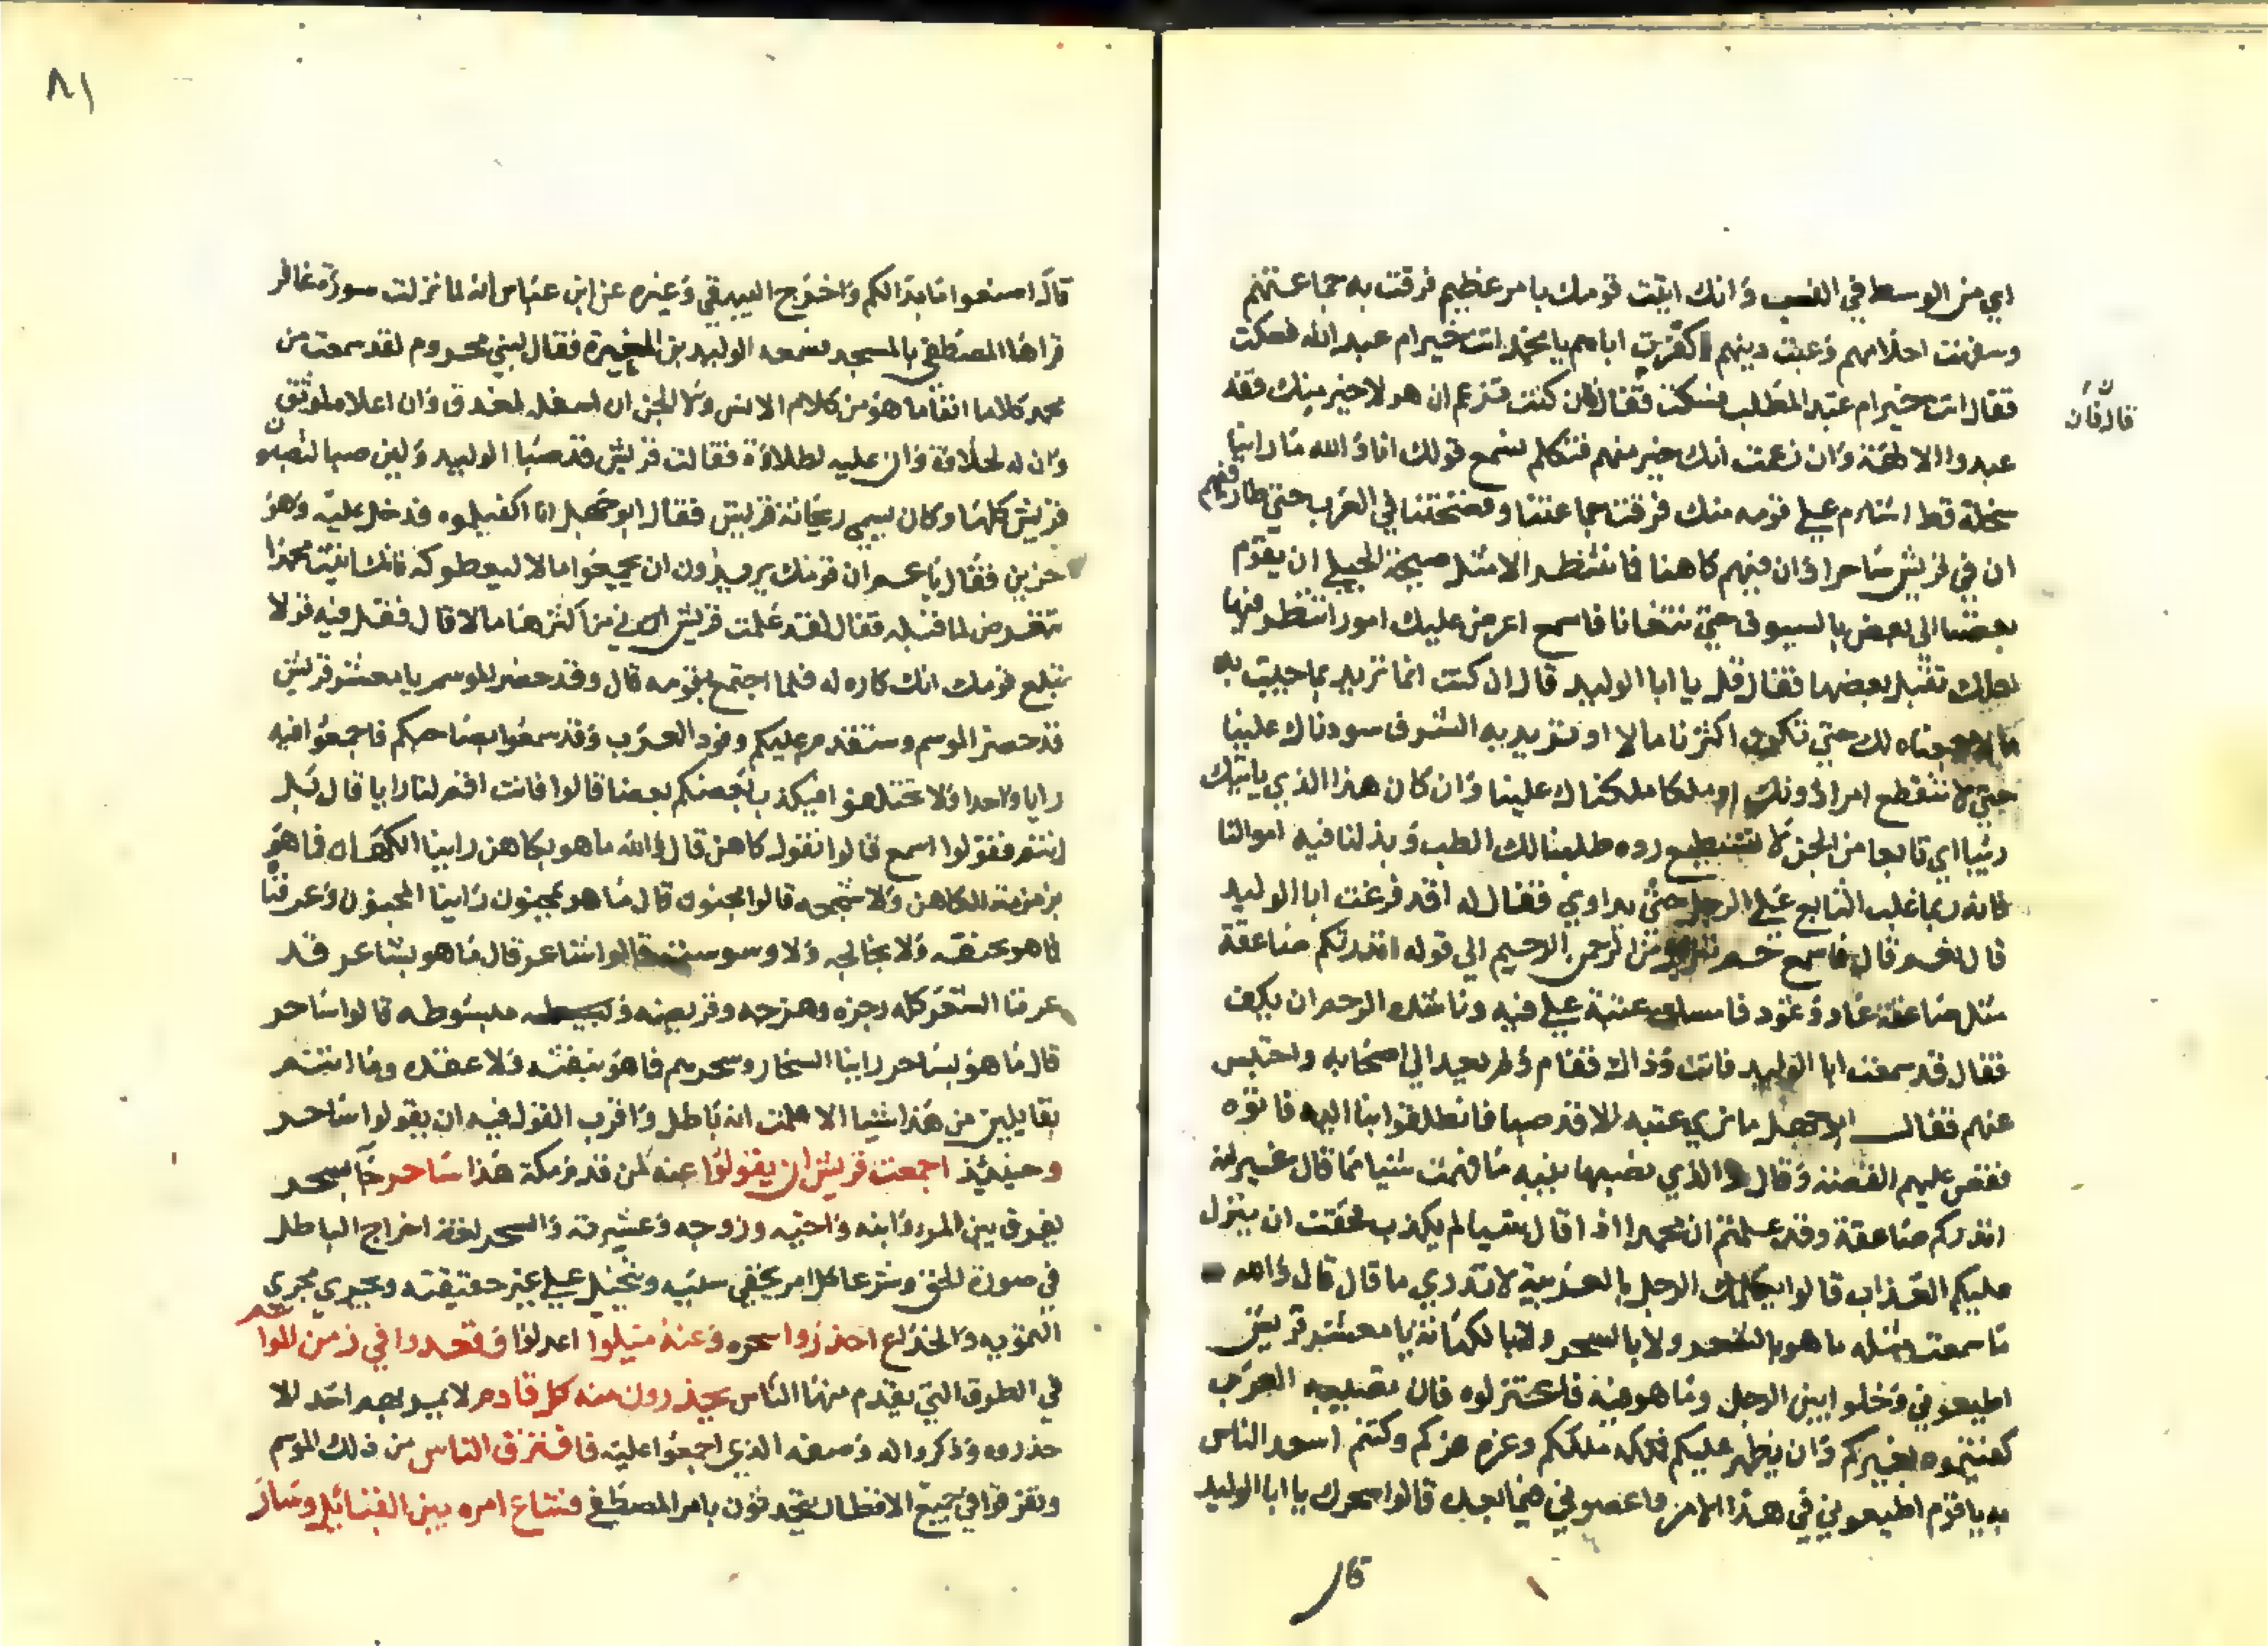 اي من الوسط في النسب وانك اتيت قومك بامر عظيم فرقت به جماعتهم
وسفهت احلامهم وعبت دينهم وكفرت اباهم يا محمد انت خير ام عبد الله فسكت
فقال انت خير ام عبد المطلب فسكت فقال فان كنت تزعم ان هولا خير منك فقد
قال فان
عبدوا الالهة وان زعمت انك خير منهم فتكلم نسمع قولك انا والله ما راينا
سخلة قط اشام علي قومه منك فرقت جماعتنا وفضحتنا في العرب حتي طار فيهم
ان في قريش ساحرا وان فيهم كاهنا فانتظر الا مثل صيحة الحبلي ان يقوم
بعضنا الى بعض بالسيوف حتي نتفانا فاسمع اعرض عليك امورا تنظر فيها
لعلك تقبل بعضها فقال قل يا ابا الوليد قال ان كنت انما تريد بما جيت به
مالا جمعناه لك حتي تكون اكثرنا مالا او تريد به الشرف سودناك علينا
حتي لا نقطع امرا دونك او ملكا ملكناك علينا وان كان هذا الذي ياتيك
رييا اي تابعا من الجن لا تستطيع رده طلبنا لك الطب وبذلنا فيه اموالنا
فانه ربما غلب التابع علي الرجل حتي يداوي فقال له اقد فرغت ابا الوليد
قال نعم قال فاسمع حم تنزيل من الرحمن الرحيم الي قوله انذرتكم صاعقة
مثل صاعقة عاد وثمود فامسك عتبة علي فيه وناشده الرحم ان يكف
فقال قد سمعت ابا الوليد فانت وذاك فقام ولم يعد الي اصحابه واحتبس
عنهم فقال ابو جهل ما نري عتبه الا قد صبا فانطلقوا بنا اليه فاتوه
فقص عليهم القصة وقال والذي نصبها بنيه ما فهمت شيا مما قال غير انه
انذركم صاعقة وقد علمتم ان محمدا اذا قال شيا لم يكذب فخفت ان ينزل
عليكم العذاب قالوا يكلمك الرجل بالعربية لا تدري ما قال قال والله
ما سمعت مثله ما هو بالشعر ولا بالسحر ولا بالكهانة يا معشر قريش
اطيعوني وخلوا بين الرجل وما هو فيه فاعتزلوه فان تصيبه العرب
كفيتموه بغيركم وان يظهر عليكم فملكه ملككم وعزه عزكم وكنتم اسعد الناس
به يا قوم اطيعوني في هذا الامر واعصوني فيما بعد قالوا سحرك يا ابا الوليد
قال
٨١
قال اصنعوا ما بدا لكم واخرج البيهقي وغيره عن ابن عباس انه لما نزلت سورة غافر
قراها المصطفي بالمسجد فسمعه الوليد بن المغيرة فقال لبني مخزوم لقد سمعت من
محمد كلاما انفا ما هو من كلام الانس ولا الجن ان اسفله لمغدق وان اعلاه لموثق
وان له لحلاوة وان عليه لطلاوة فقالت قريش قد صبا الوليد ولين صبا لتصبون
قريش كلها وكان يسمي ريحانة قريش فقال ابو جهل انا اكفيكموه فدخل عليه وهو
حزين فقال يا عم ان قومك يريدون ان يجمعوا مالا ليعطوكه فانك اتيت محمدا
تتعرض لما قبله فقال لقد علمت قريش اني من اكثرها مالا قال فقل فيه قولا
يبلغ قومك انك كاره له فلما اجتمع بقومه قال وقد حضر الموسم يا معشر قريش
قد حضر الموسم وستقدم عليكم وفود العرب وقد سمعوا بصاحبكم فاجمعوا فيه
رايا واحدا ولا تختلفوا فيكذب بعضكم بعضا قالوا فانت اقم لنا رايا قال بل
انتم فقولوا اسمع قالوا نقول كاهن قال والله ما هو بكاهن راينا الكهان فما هو
بزمزمة الكاهن ولا سجعه قالوا مجنون قال ما هو بمجنون راينا المجنون وعرفنا
فما هو بخنقه ولا تخالجه ولا وسوسته قالوا شاعر قال ما هو بشاعر قد
عرفنا الشعر كله رجزه وهزجه وقريضه وبسيطه مبسوطه قالوا ساحر
قال ما هو بساحر راينا السحار وسحرهم فما هو بنفثه ولا عقده وما انتم
بقايلين من هذا شيا الا علمت انه باطل واقرب القول فيه ان يقولوا ساحر
وحينيذ اجمعت قريش ان يقولوا عنه لمن قدم مكة هذا ساحر جا بسحر
يفرق بين المرء وابنه واخيه وزوجه وعشيرته والسحر لغة اخراج الباطل
في صورة الحق وشرعا كل امر يخفي سببه ويتخيل علي غير حقيقته ويجري مجري
التمويه والخداع احذروا سحره وعنه ميلوا اعدلوا وقعدوا في زمن المواسم
في الطرق التي يقدم منها الناس يحذرون منه كل قادم لا يمر بهم احد الا
حذروه وذكروا له وصفه الذي اجمعوا عليه فافترق الناس من ذلك الموسم
وتفرقوا في جميع الاقطار يتحدثون بامر المصطفي فشاع امره بين القبائل وسار